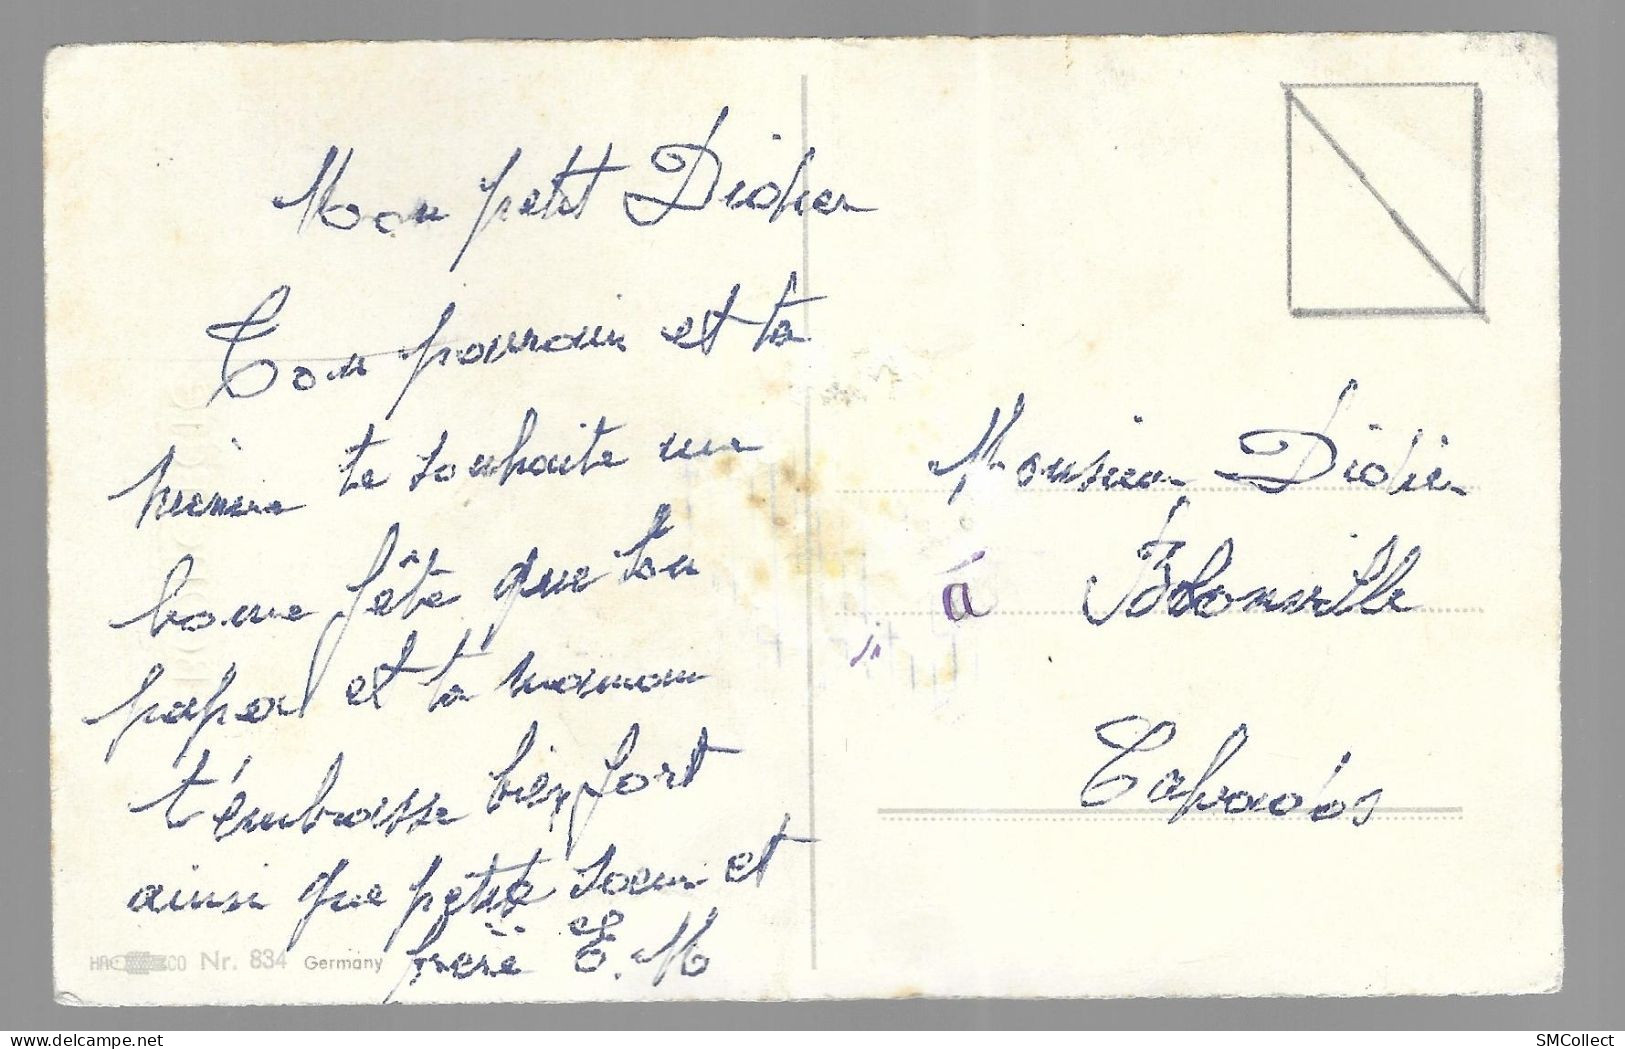 Mon petit Didier
Ton parrain et ta
mémére te souhaite une
bonne fête que ton
papa et ta maman
t'embrasse bien fort
ainsi que petite soeur et
frere E.M
Monsieur Didier
à Blonville
Calvados
Nr. 834 Germany
SMCollect